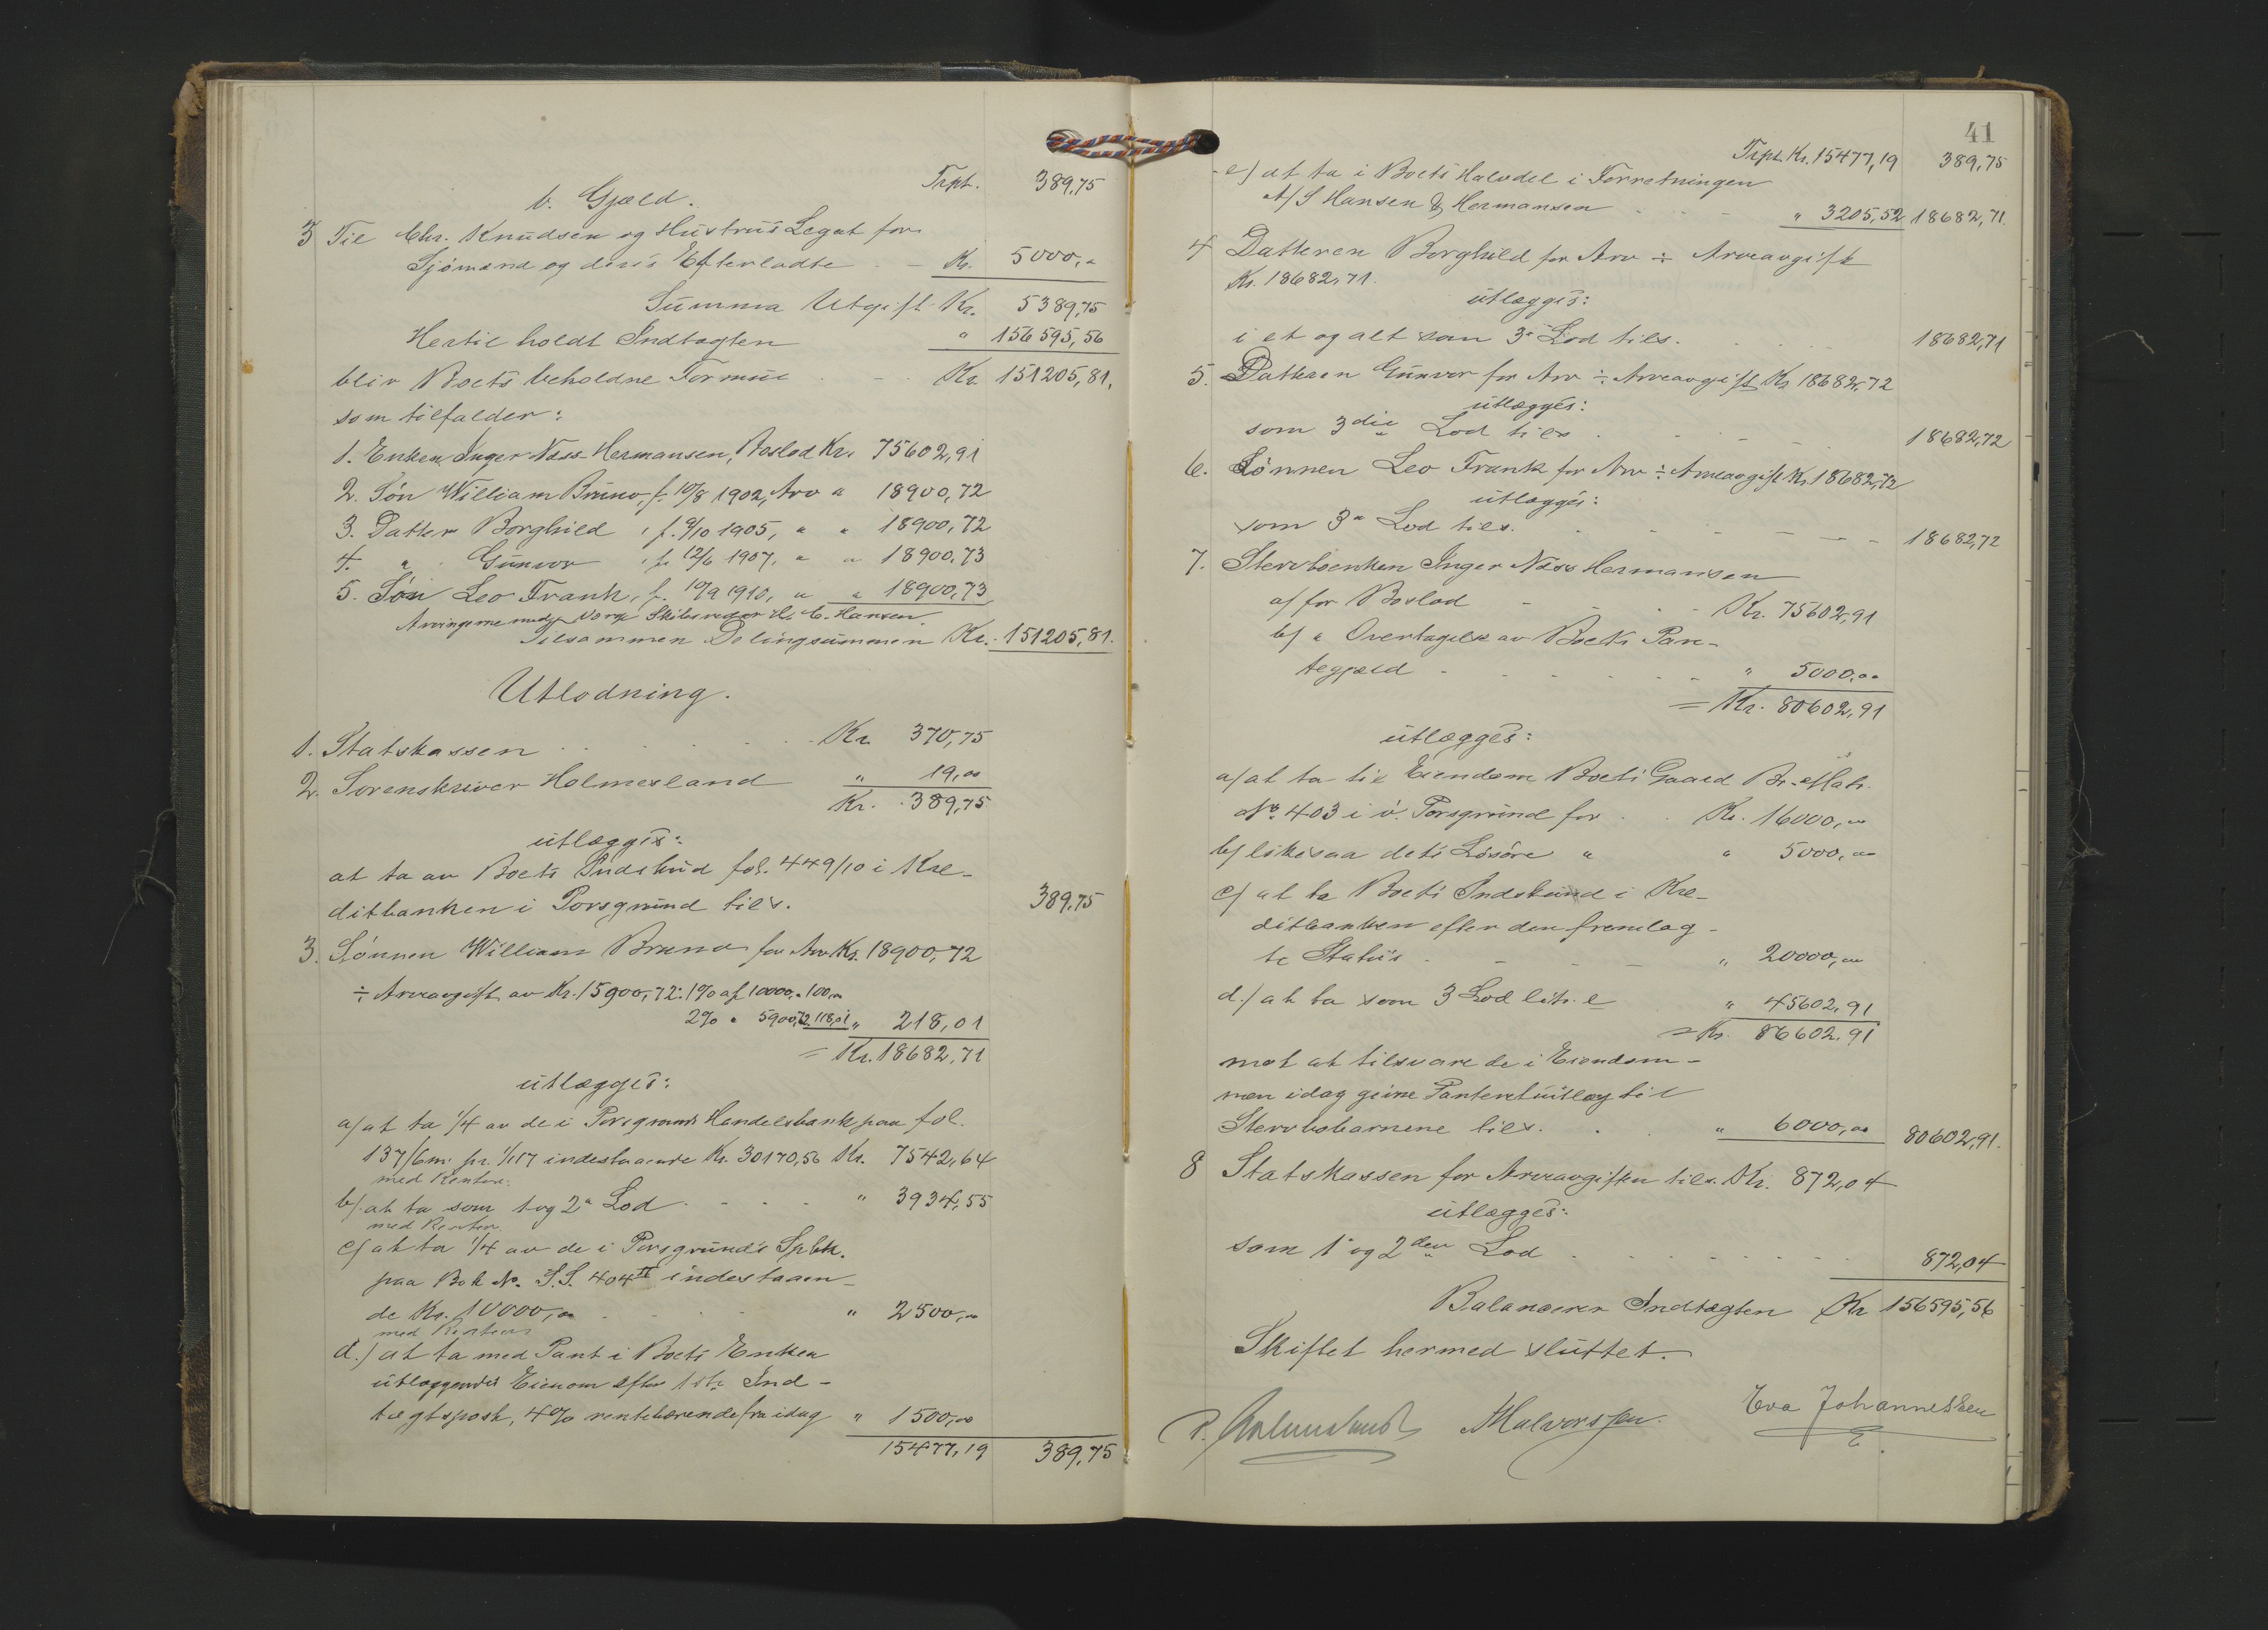 Trpt. 389,75
b. Gjæld.
3 Til Chr. Knudsen og Hustrus Legat for
Sjömænd og deres Efterladte - Kr. 5000,"
Summa Utgift Kr. 5389,75
Hertil holdt Indtægten " 156595,56
blir Boets beholdne Formue - Kr. 151205,81,
som tilfalder:
1. Enken Inger Næss-Hermansen, Boslod Kr. 75602,91
2. Søn William Bruno, f. 10/8 1902, Arv " 18900,72
3. Datter Borghild, f. 9/10 1905, " " 18900,72
4. " Gunvor, f. 12/6 1907, " " 18900,73
5. Søn Leo Frank, f. 10/9 1910, " " 18900,73
Arvingerne med Verge Skibsreder H. C. Hansen
Tilsammen Delingsummen Kr. 151205,81.
Utlodning.
1. Statskassen Kr. 370,75
2. Sorenskriver Holmesland " 19,00
Kr. 389,75
utlægges:
at ta av Boets Indskud fol. 449/10 i Kre-
ditbanken i Porsgrund tils. 389,75
3. Sønnen William Bruno for Arv Kr. 18900,72
÷ Arveavgift av Kr. 15900,72: 1% af 10000,- 100,00
2% " 5900,72 118,01 " 218,01
= Kr. 18682,71
utlægges:
a/ at ta 1/4 av de i Porsgrunds Handelsbank paa fol.
137/6m. pr. 1/1 17 indestaaende Kr. 30170,56 Kr. 7542,64
med Renter.
b/ at ta som 1 og 2" Lod - - - " 3934,55
med Renter.
c/ at ta 1/4 av de i Porsgrund's Spbk.
paa Bok No. S.S. 404 II indestaaen-
de Kr. 10000,00 " 2500,00
med Renter
d./ at ta med Pant i Boets Enken
utlæggendes Eienom efter 1ste Ind-
tægtspost, 4% rentebærende fra idag " 1500,00
15477,19 389,75
41
Trpt. Kr. 15477,19 389,75
e/ at ta i Boets Halvdel i Forretningen
A/S Hansen & Hermansen - - - " 3205,52 18682,71.
4 Datteren Borghild for Arv ÷ Arveavgift
Kr. 18682,71.
utlægges:
i et og alt som 3" Lod tils. 18682,71
5. Datteren Gunvor for Arv ÷ Arveavgift Kr 18682,72
utlægges:
som 3die Lod tils 18682,72
6. Sønnen Leo Frank for Arv ÷ Arveavgift Kr 18682,72
utlægges:
som 3" Lod tils. 18682,72
7. Stervboenken Inger Næss Hermansen
a/ for Boslod - - - Kr. 75602,91
b/ " Overtagelse av Boets Pan-
tegjæld - - - " 5000,00
= Kr. 80602,91
utlægges:
a/ at ta til Eiendom Boets Gaard Br.-Matr.
No. 403 i ö. Porsgrund for Kr. 16000,00
b/ likesaa dets Lösöre " " 5000,00
c/ at ta Boets Indskud i Kre-
ditbanken efter den fremlag-
te Status - - - " 20000,00
d./ at ta som 3 Lod litr. e " 45602,91
= Kr. 86602,91
mot at tilsvare de i Eiendom-
men idag givne Panteretsutlæg til
Stervbobarnene tils. " 6000,00 80602,91.
8 Statskassen for Arveavgiften tils. Kr. 872,04
utlægges:
som 1" og 2den Lod 872,04
Balanserer Indtægten Kr 156595,56
Skiftet hermed sluttet.
Halvorsen. Eva Johannessen
E.